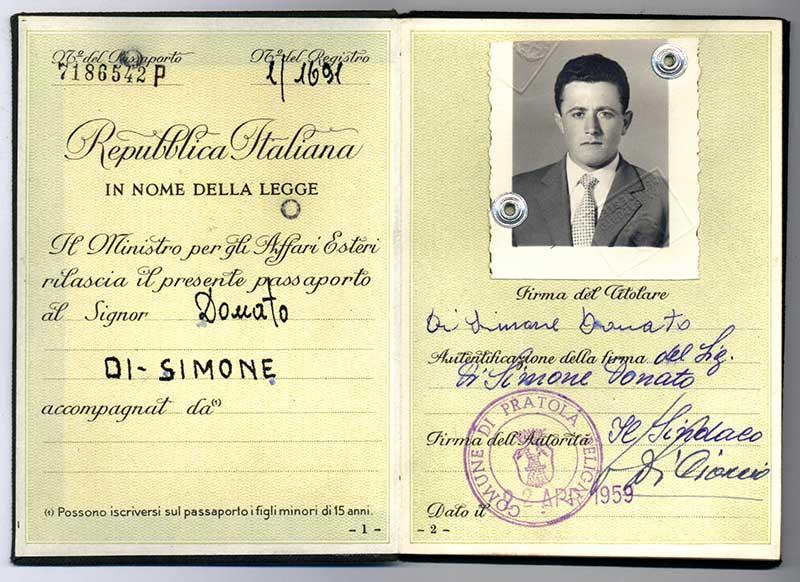 Nº del Passaporto
7186542 P
Nº del Registro
1/1691
Repubblica Italiana
IN NOME DELLA LEGGE
Il Ministro per gli Affari Esteri
rilascia il presente passaporto
al Signor Donato
DI-SIMONE
accompagnat da (1)
(1) Possono iscriversi sul passaporto i figli minori di 15 anni.
- 1 -
Firma del Titolare
Di Simone Donato
Autentificazione della firma del Sig.
Di Simone Donato
Firma dell'Autorità Il Sindaco
COMUNE DI PRATOLA PELIGNA
2 APR 1959
Dato il
- 2 -